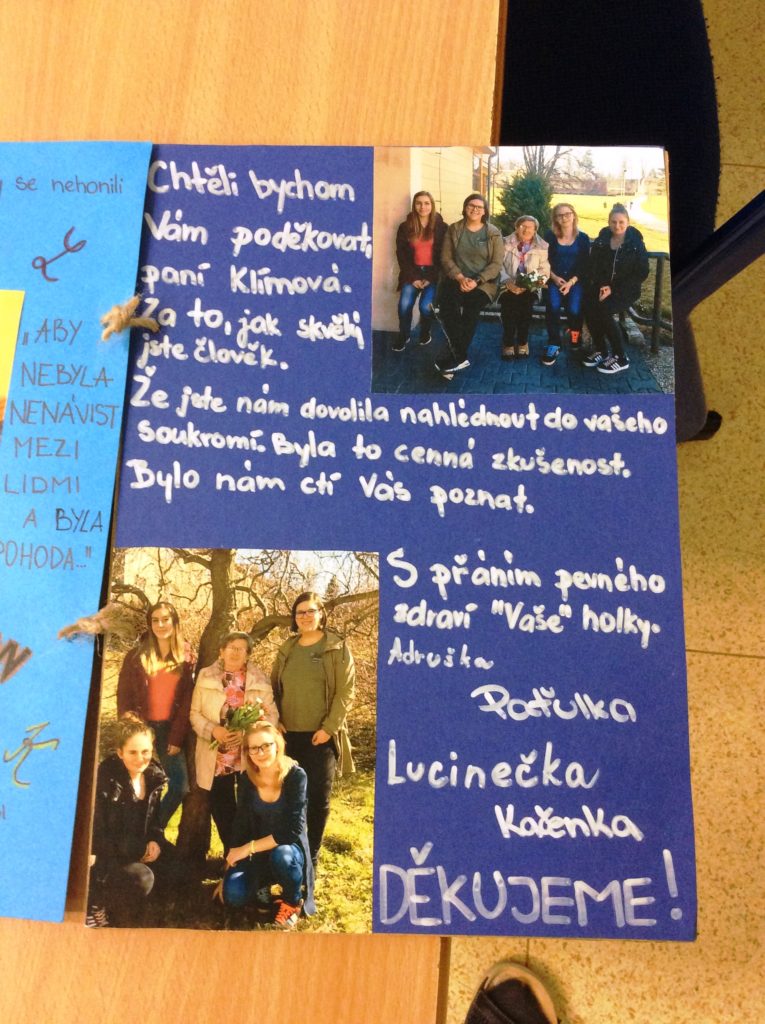 se nehonili
„ABY
NEBYLA
NENÁVIST
MEZI
LIDMI
A BYLA
POHODA..."
Chtěli bychom
Vám poděkovat,
paní Klímová.
Za to, jak skvělý
jste člověk.
Že jste nám dovolila nahlédnout do vašeho
soukromí. Byla to cenná zkušenost.
Bylo nám ctí Vás poznat.
S přáním pevného
zdraví "Vaše" holky.
Adruška
Paťulka
Lucinečka
Kačenka
DĚKUJEME!